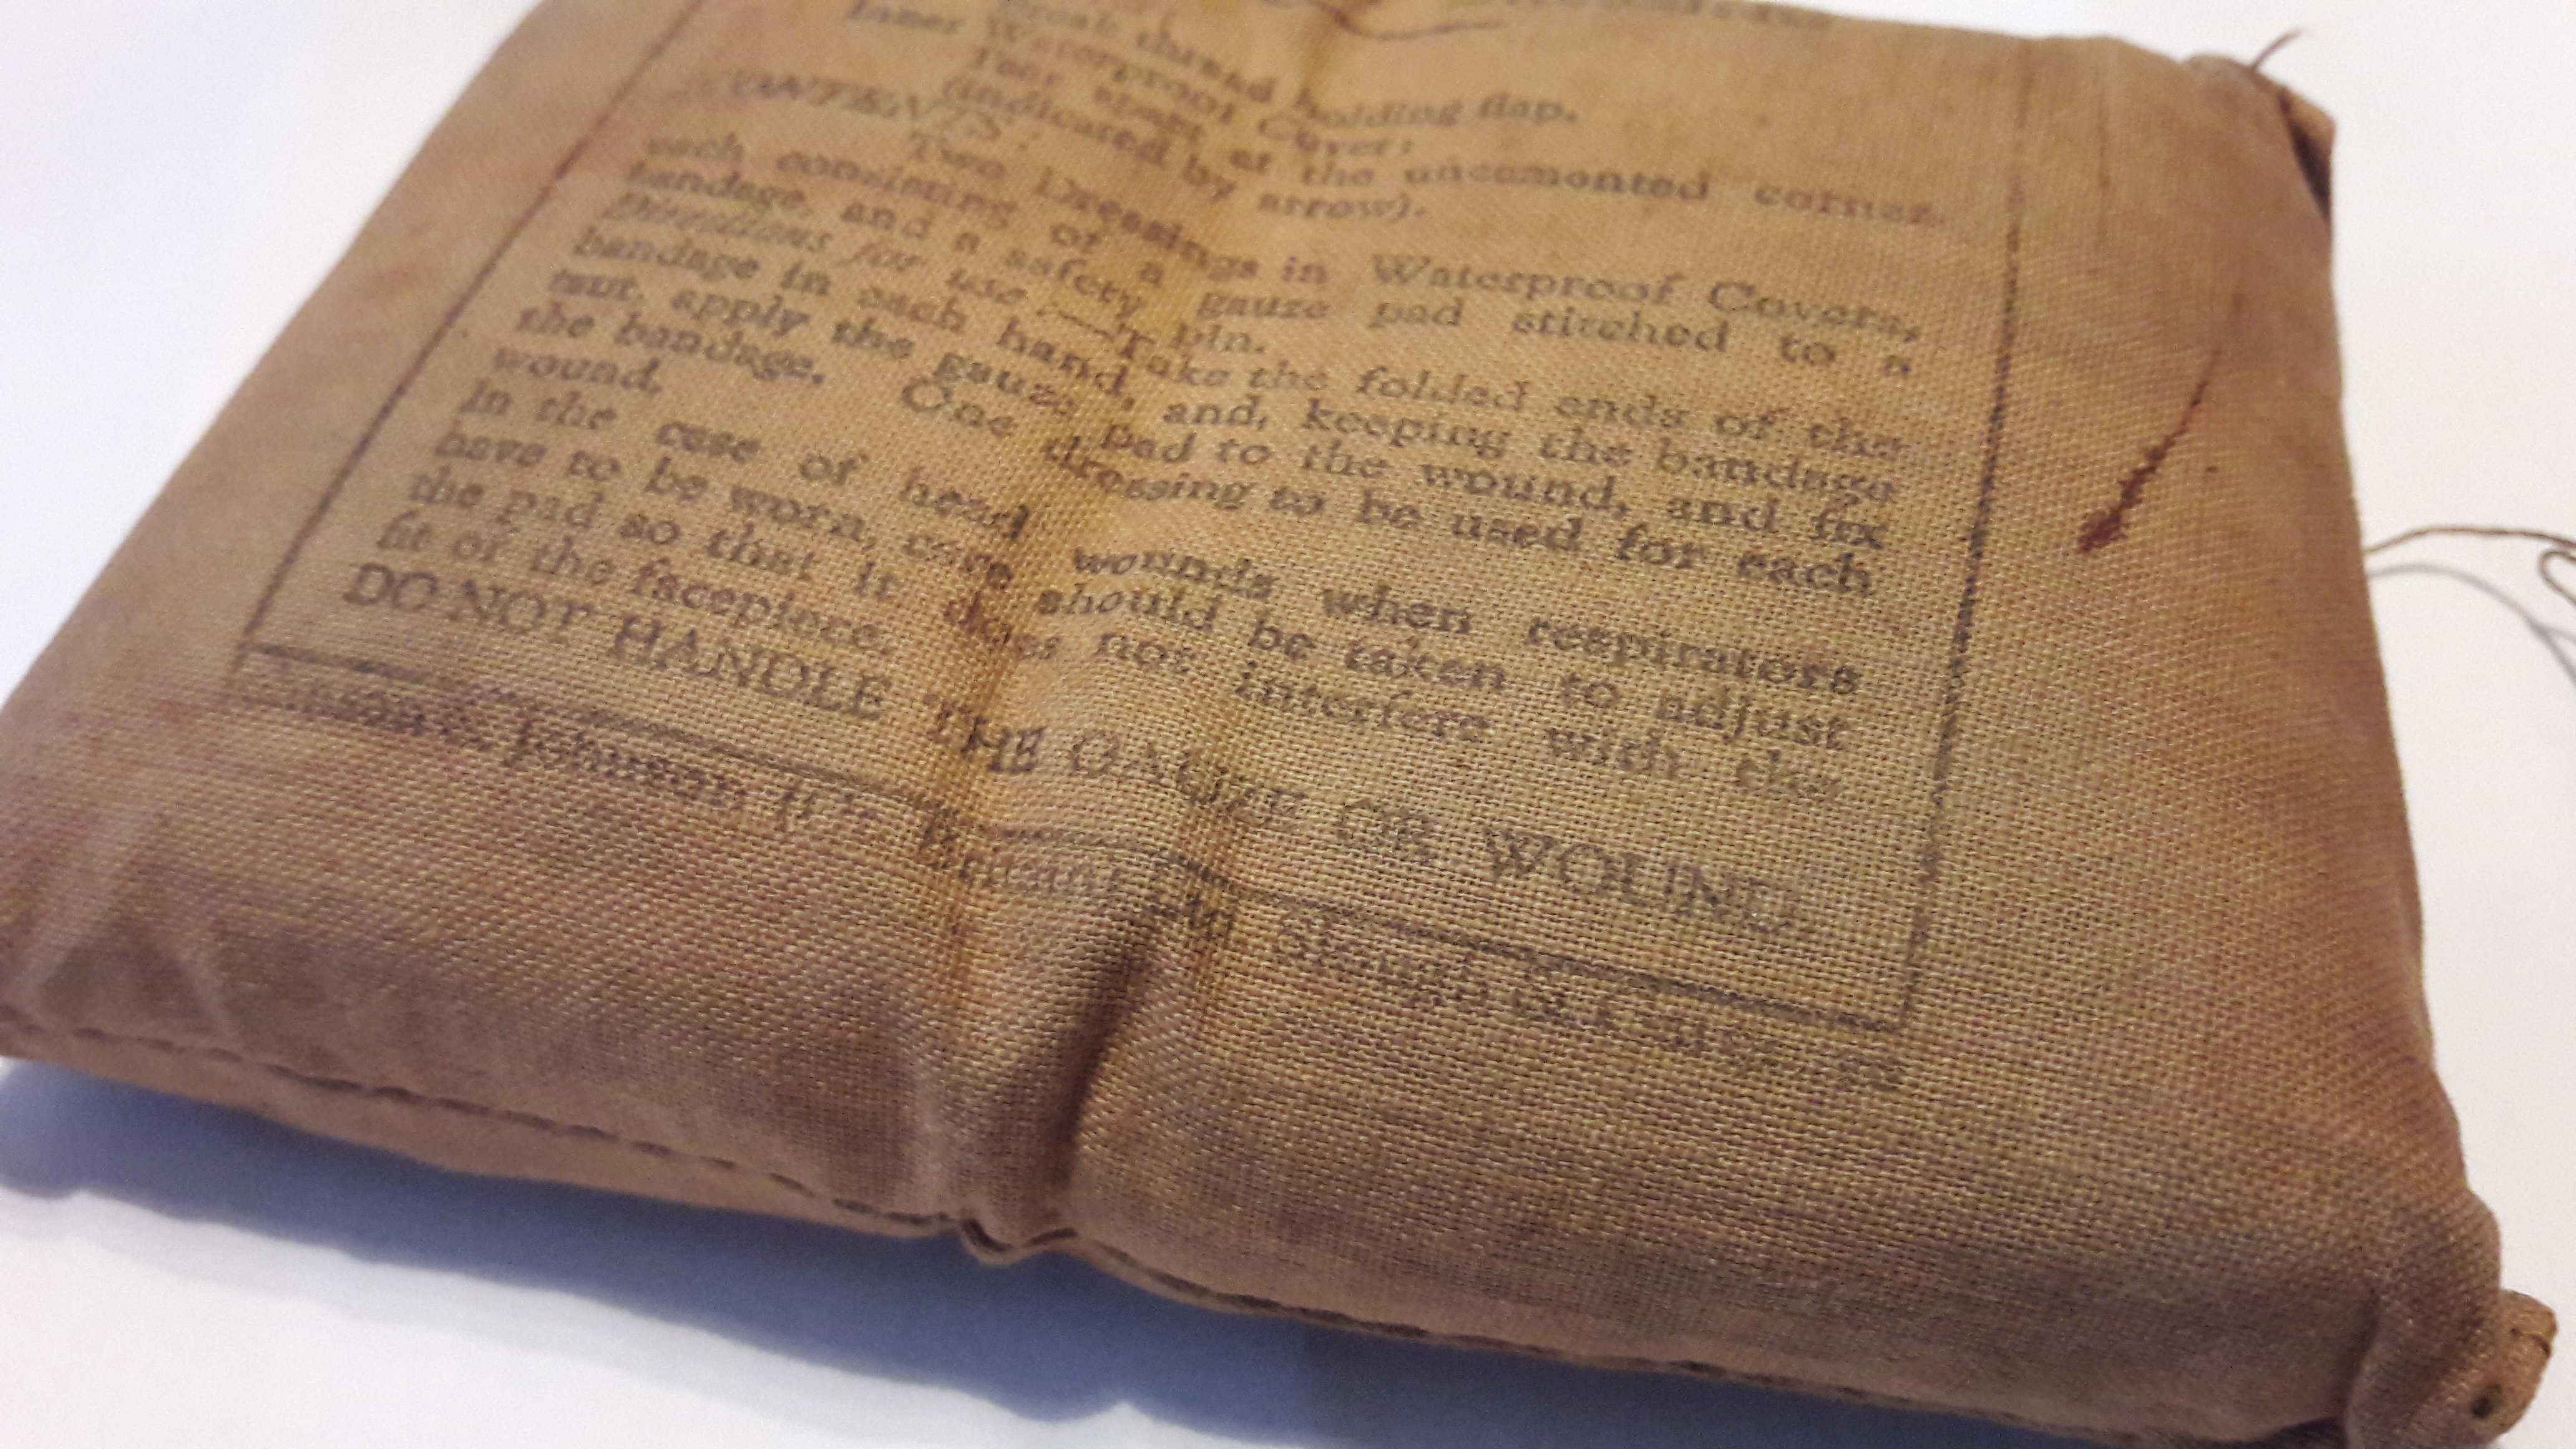 thread holding flap.
Inner Waterproof Cover:
Tear apart at the uncemented corner
(indicated by arrow).
CONTENTS
Two Dressings in Waterproof Covers,
each consisting of a gauze pad stitched to a
bandage, and a safety pin.
Directions for use.—Take the folded ends of the
bandage in each hand, and, keeping the bandage
taut, apply the gauze pad to the wound, and fix
the bandage. One dressing to be used for each
wound.
In the case of head wounds when respirators
have to be worn, care should be taken to adjust
the pad so that it does not interfere with the
fit of the facepiece.
DO NOT HANDLE THE GAUZE OR WOUND
Johnson & Johnson (Gt. Britain) Ltd. Slough &